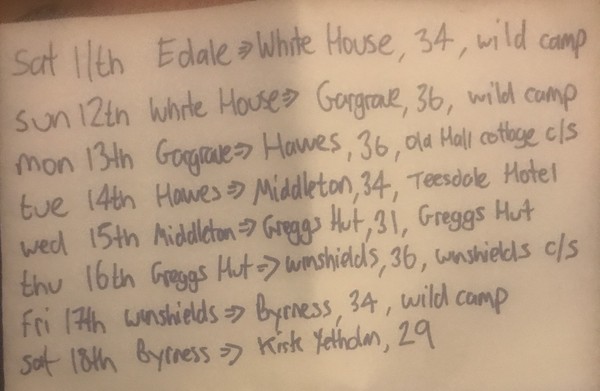 Sat 11th Edale => White House, 34, wild camp
sun 12th White House => Gargrave, 36, wild camp
mon 13th Gargrave => Hawes, 36, Old Hall cottage c/s
tue 14th Hawes => Middleton, 34, Teesdale Hotel
wed 15th Middleton => Greggs Hut, 31, Greggs Hut
thu 16th Greggs Hut => winshields, 36, winshields c/s
Fri 17th winshields => Byrness, 34, wild camp
sat 18th Byrness => Kirk Yetholm, 29